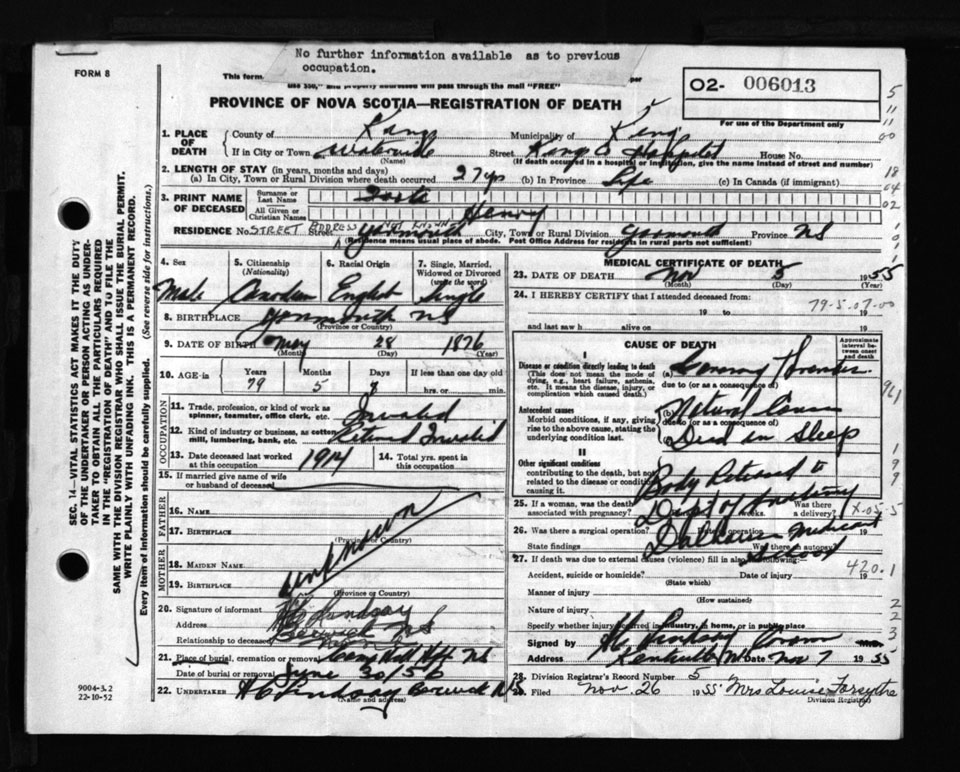 No further information available as to previous
occupation.
FORM 8
This form
per
use 350," and property addressed will pass through the mail "FREE"
O2- 006013
For use of the Department only
PROVINCE OF NOVA SCOTIA—REGISTRATION OF DEATH
1. PLACE OF DEATH
County of Kings Municipality of Kings
If in City or Town Waterville Street Kings Co Hospital House No.
(Name) (If death occurred in a hospital or institution, give the name instead of street and number)
2. LENGTH OF STAY (in years, months and days)
(a) In City, Town or Rural Division where death occurred 27 yrs (b) In Province Life (c) In Canada (if immigrant)
3. PRINT NAME OF DECEASED
Surname or Last Name
All Given or Christian Names Henry
RESIDENCE No. STREET ADDRESS NOT KNOWN Street Yarmouth City, Town or Rural Division Yarmouth Province NS
(Residence means usual place of abode. Post Office Address for residents in rural parts not sufficient)
4. Sex 5. Citizenship (Nationality) 6. Racial Origin 7. Single, Married, Widowed or Divorced (write the word)
Male Canadian English Single
8. BIRTHPLACE Yarmouth NS
(Province or Country)
9. DATE OF BIRTH May 28 1876
(Month) (Day) (Year)
10. AGE-in Years Months Days If less than one day old
79 5 7 hrs. or min.
OCCUPATION
11. Trade, profession, or kind of work as spinner, teamster, office clerk, etc. Invalid
12. Kind of industry or business, as cotton mill, lumbering, bank, etc. Retired Invalid
13. Date deceased last worked at this occupation 1914 14. Total yrs. spent in this occupation
15. If married give name of wife or husband of deceased
FATHER
16. Name
17. Birthplace
(Province or Country)
unknown
MOTHER
18. Maiden Name
19. Birthplace
(Province or Country)
20. Signature of informant HC Lindsay
Address Berwick NS
Relationship to deceased
21. Place of burial, cremation or removal Camp Hill Hfx NS
Date of burial or removal June 30/56
22. UNDERTAKER HC Lindsay Berwick NS
(Name and address)
MEDICAL CERTIFICATE OF DEATH
23. DATE OF DEATH Nov 5 1955
(Month) (Day) (Year)
24. I HEREBY CERTIFY that I attended deceased from:
79-5-07-00
19 to 19
and last saw h alive on 19
CAUSE OF DEATH
Approximate interval between onset and death
I
Disease or condition directly leading to death
(This does not mean the mode of dying, e.g., heart failure, asthenia, etc. It means the disease, injury, or complication which caused death.)
(a) Coronary Thrombosis
due to (or as a consequence of)
Antecedent causes
Morbid conditions, if any, giving rise to the above cause, stating the underlying condition last.
(b) Natural Causes
due to (or as a consequence of)
Died in Sleep
II
Other significant conditions
contributing to the death, but not related to the disease or condition causing it.
Body Returned to
Dept of Anatomy
Dalhousie Medical
School
25. If a woman, was the death associated with pregnancy? weeks. Was there a delivery?
26. Was there a surgical operation? Date of operation
State findings Was there an autopsy?
27. If death was due to external causes (violence) fill in also the following:—
Accident, suicide or homicide? Date of injury 19
(State which)
420.1
Manner of injury
(How sustained)
Nature of injury
Specify whether injury occurred in industry, in home, or in public place
Signed by HC Lindsay Coroner
Address Kentville NS Date Nov 7 1955
28. Division Registrar's Record Number 5
29. Filed Nov. 26 1955 Mrs Louise Forsythe
Division Registrar
SEC. 14—VITAL STATISTICS ACT MAKES IT THE DUTY
OF THE UNDERTAKER OR PERSON ACTING AS UNDER-
TAKER TO OBTAIN ALL THE PARTICULARS REQUIRED
IN THE "REGISTRATION OF DEATH" AND TO FILE THE
SAME WITH THE DIVISION REGISTRAR WHO SHALL ISSUE THE BURIAL PERMIT.
WRITE PLAINLY WITH UNFADING INK. THIS IS A PERMANENT RECORD.
Every item of information should be carefully supplied. (See reverse side for instructions.)
9004-3.2
22-10-52
5
11
11
00
18
04
02
961
1
9
9
2
2
3